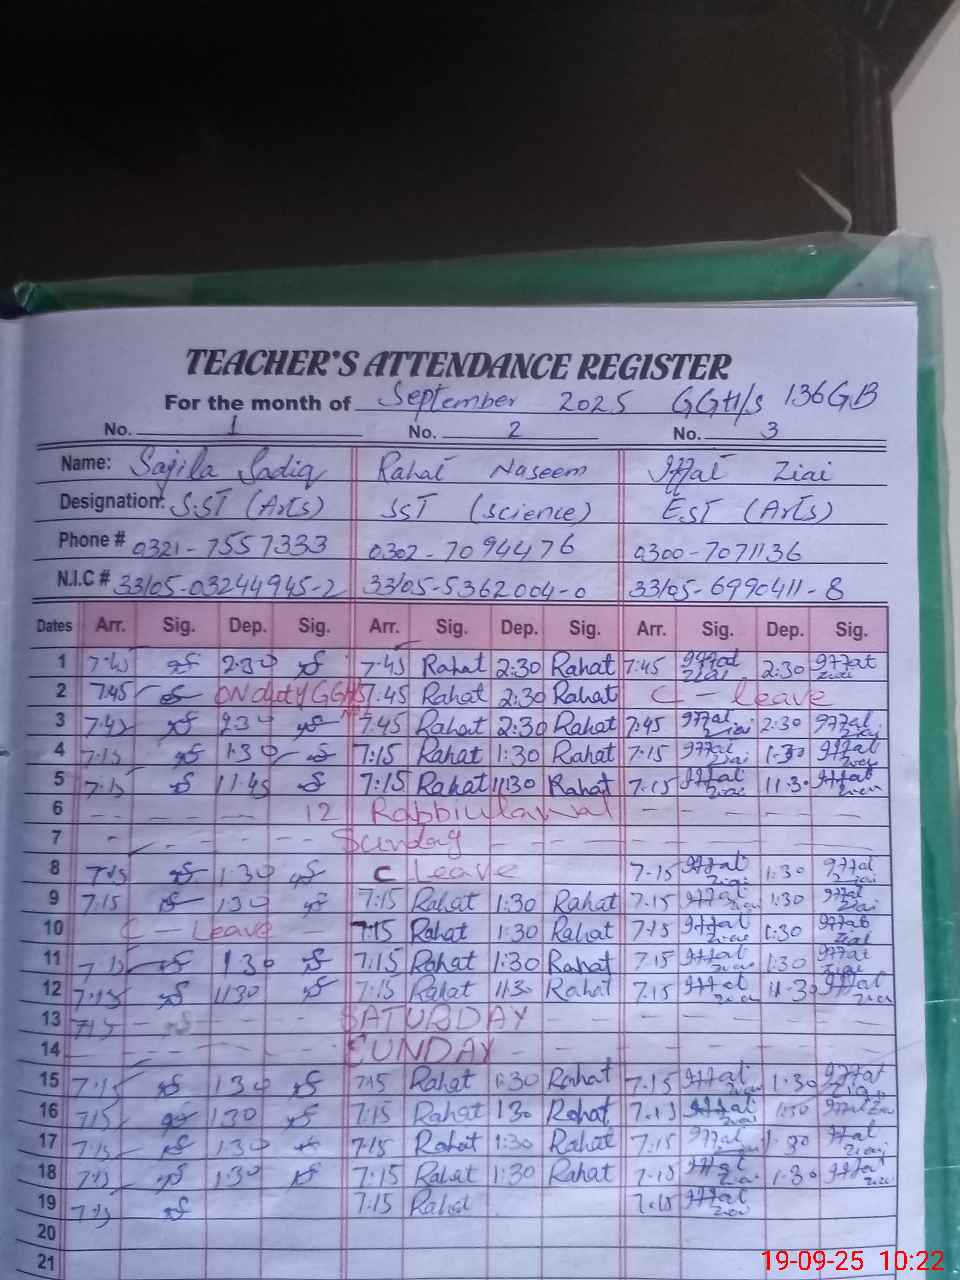 TEACHER'S ATTENDANCE REGISTER
For the month of September 2025 GGH/S 136GB
No. 1 No. 2 No. 3
Name: Sajila Sadiq Rahat Naseem Iffat Ziai
Designation: S.ST (Arts) SST (science) EST (Arts)
Phone # 0321-7557333 0302-7094476 0300-7071136
N.I.C # 33105-03244945-2 33105-5362004-0 33105-6990411-8
Dates Arr. Sig. Dep. Sig. Arr. Sig. Dep. Sig. Arr. Sig. Dep. Sig.
1 7:45 2:30 7:45 Rahat 2:30 Rahat 7:45 Iffat Ziai 2:30 Iffat Ziai
2 7:45 ON duty GGHS 7:45 Rahat 2:30 Rahat C - leave
3 7:45 2:30 7:45 Rahat 2:30 Rahat 7:45 Iffat Ziai 2:30 Iffat Ziai
4 7:15 1:30 7:15 Rahat 1:30 Rahat 7:15 Iffat Ziai 1:30 Iffat Ziai
5 7:15 11:45 7:15 Rahat 11:30 Rahat 7:15 Iffat Ziai 11:30 Iffat Ziai
6 - - - - 12 Rabbiulawal - - - -
7 - - - - Sunday - - - -
8 7:15 1:30 C Leave 7-15 Iffat Ziai 1:30 Iffat Ziai
9 7:15 130 7:15 Rahat 1:30 Rahat 7.15 Iffat Ziai 1:30 Iffat Ziai
10 C - Leave - 7:15 Rahat 1:30 Rahat 7:15 Iffat Ziai 1:30 Iffat Ziai
11 7:15 130 7:15 Rahat 1:30 Rahat 7.15 Iffat Ziai 1:30 Iffat Ziai
12 7:15 1130 7:15 Rahat 1130 Rahat 7.15 Iffat Ziai 11:30 Iffat Ziai
13 715 - - - SATURDAY - - - -
14 - - - - SUNDAY - - - -
15 7:15 130 7:15 Rahat 1:30 Rahat 7.15 Iffat Ziai 1:30 Iffat Ziai
16 7:15 130 7:15 Rahat 130 Rahat 7.15 Iffat Ziai 1:30 Iffat Ziai
17 7:15 1:30 7:15 Rahat 1:30 Rahat 7:15 Iffat Ziai 1:30 Iffat Ziai
18 7:15 1:30 7:15 Rahat 1:30 Rahat 7-15 Iffat Ziai 1:30 Iffat Ziai
19 7:15 7:15 Rahat 7:15 Iffat Ziai
20
21
19-09-25 10:22